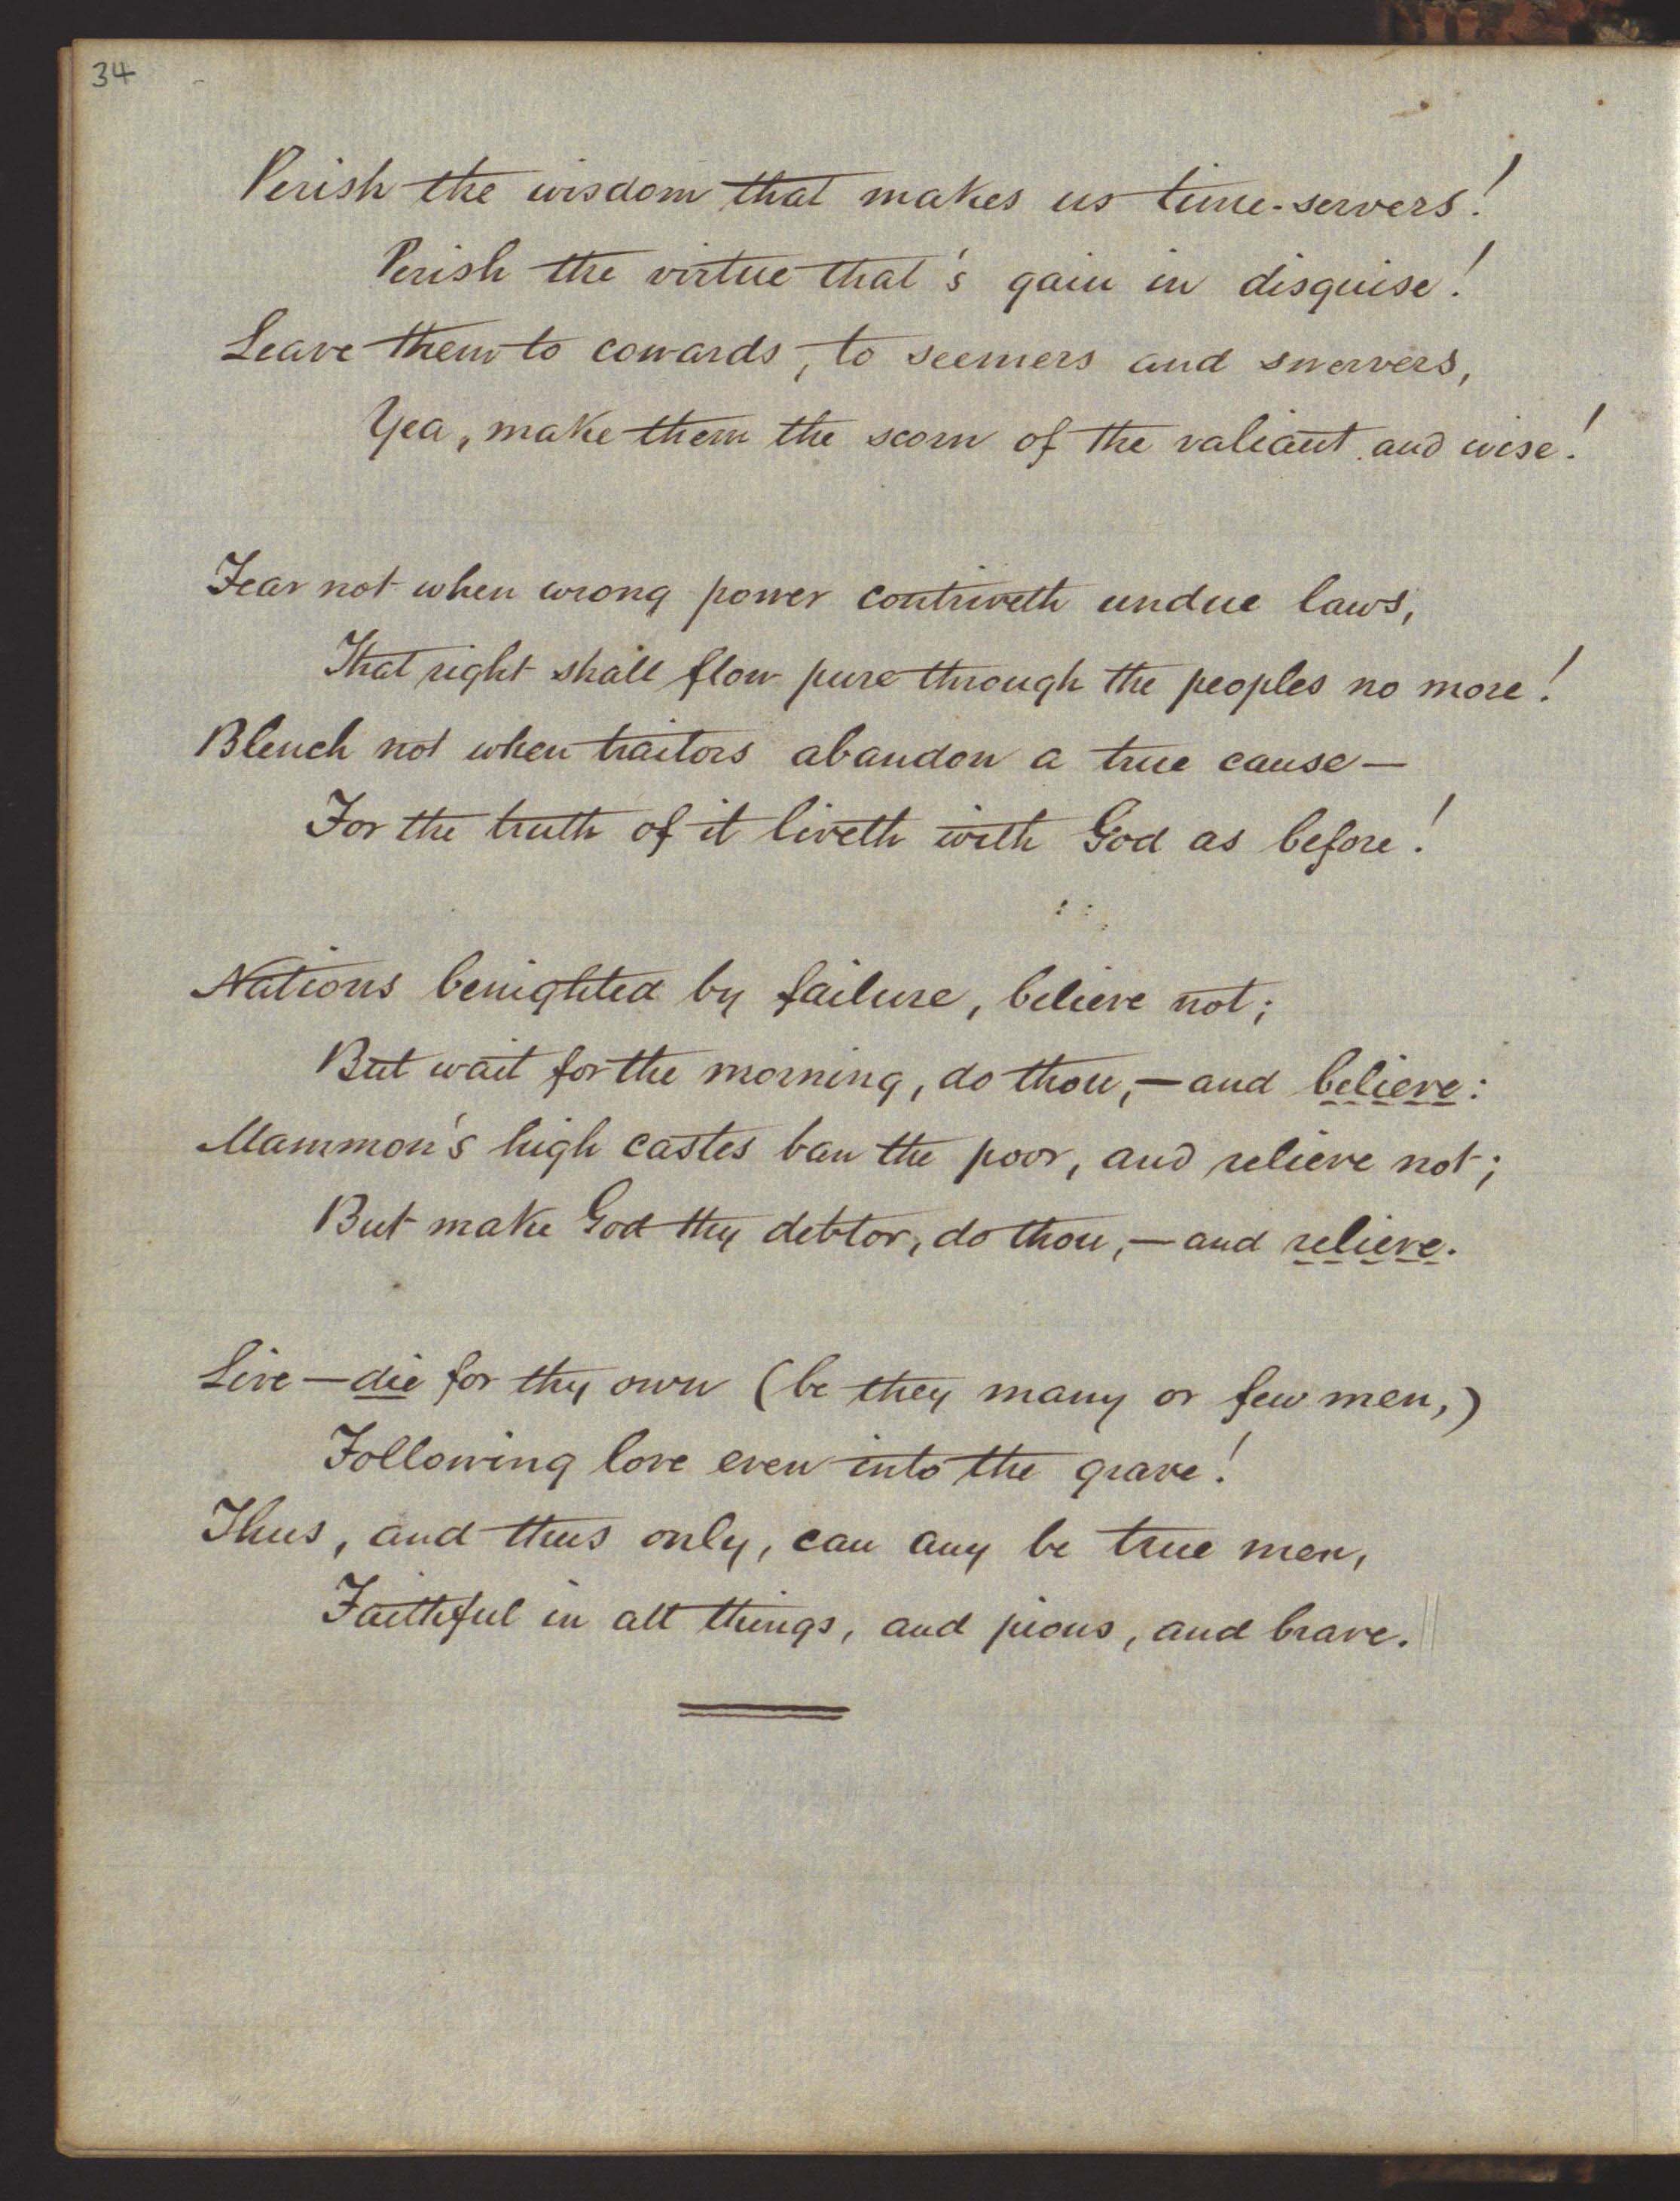 34
Perish the wisdom that makes us time-servers!
Perish the virtue that's gain in disguise!
Leave them to cowards, to seemers and swervers,
Yea, make them the scorn of the valiant and wise!
Fear not when wrong power contriveth undue laws,
That right shall flow pure through the peoples no more!
Blench not when traitors abandon a true cause—
For the truth of it liveth with God as before!
Nations benighted by failure, believe not;
But wait for the morning, do thou,—and believe:
Mammon's high castes ban the poor, and relieve not;
But make God thy debtor, do thou,—and relieve.
Live—die for thy own (be they many or few men,)
Following love even into the grave!
Thus, and thus only, can any be true men,
Faithful in all things, and pious, and brave.